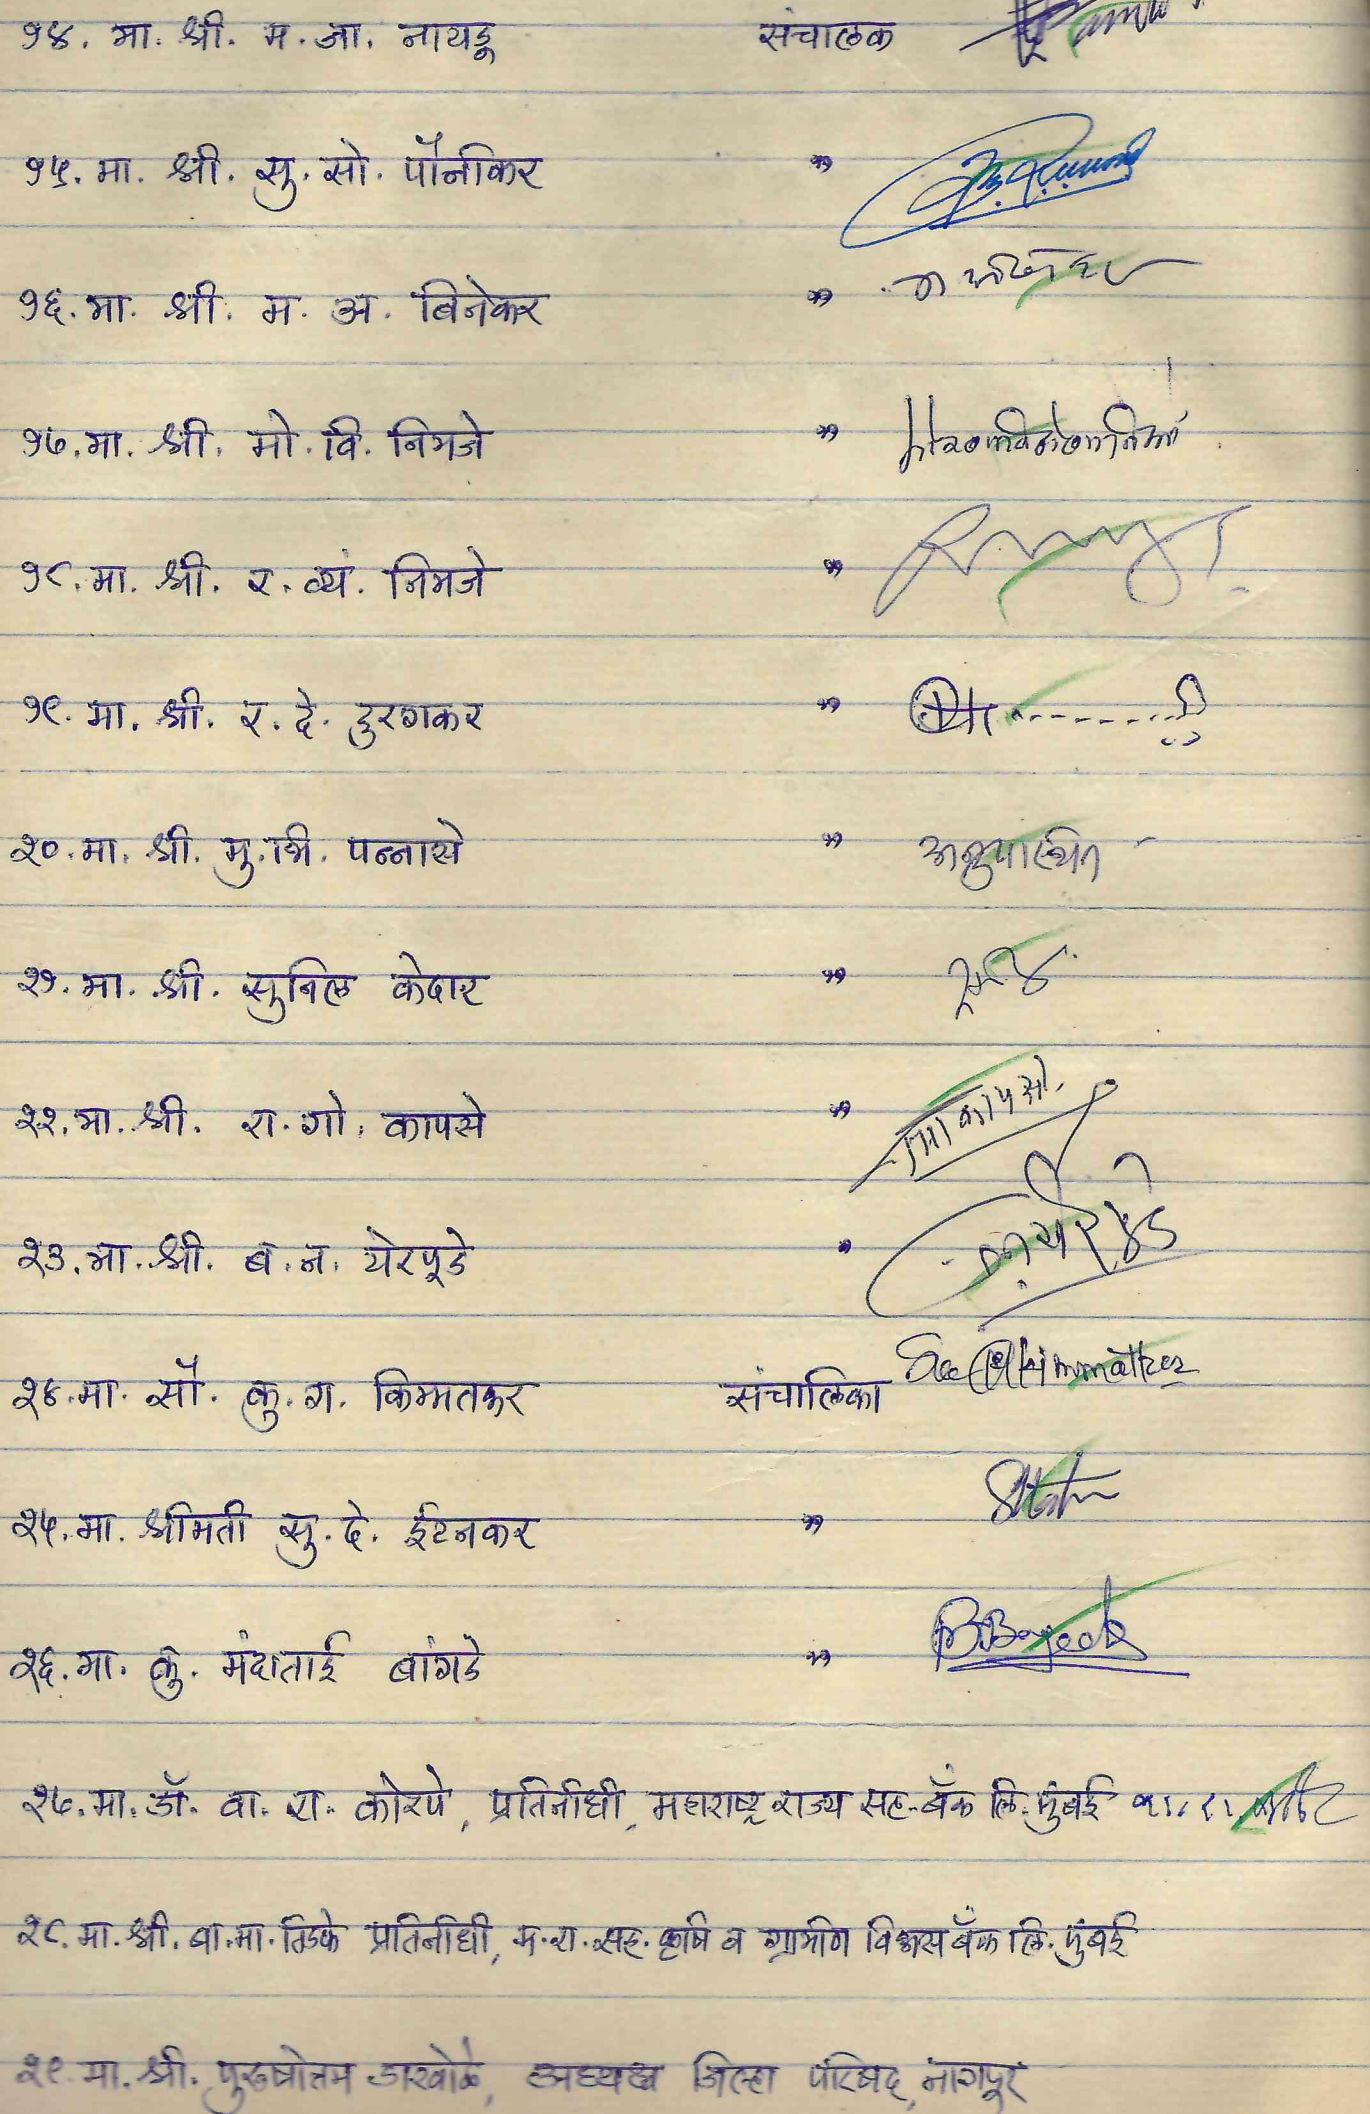 १४. मा. श्री. म. जा. नायडू संचालक
१५. मा. श्री. सु. सो. पौनीकर "
१६. मा. श्री. म. अ. बिनेकर "
१७. मा. श्री. मो. वि. निमजे "
१८. मा. श्री. र. व्यं. निमजे "
१९. मा. श्री. र. दे. दुरगकर "
२०. मा. श्री. मु. भि. पन्नासे " अनुपस्थित
२१. मा. श्री. सुनिल केदार "
२२. मा. श्री. रा. गो. कापसे "
२३. मा. श्री. ब. न. येरपूडे "
२४. मा. सौ. कु. ग. किम्मतकर संचालिका
२५. मा. श्रीमती सु. दे. ईटनकर "
२६. मा. कु. मंदाताई बांगडे " B. Bangade
२७. मा. डॉ. वा. रा. कोरपे, प्रतिनीधी, महाराष्ट्र राज्य सह. बँक लि. मुंबई
२८. मा. श्री. बा. मा. तिडके प्रतिनीधी, म. रा. सह. कृषि व ग्रामीण विकास बँक लि. मुंबई
२९. मा. श्री. पुरुषोत्तम डाखोळे, अध्यक्ष जिल्हा परिषद, नागपूर